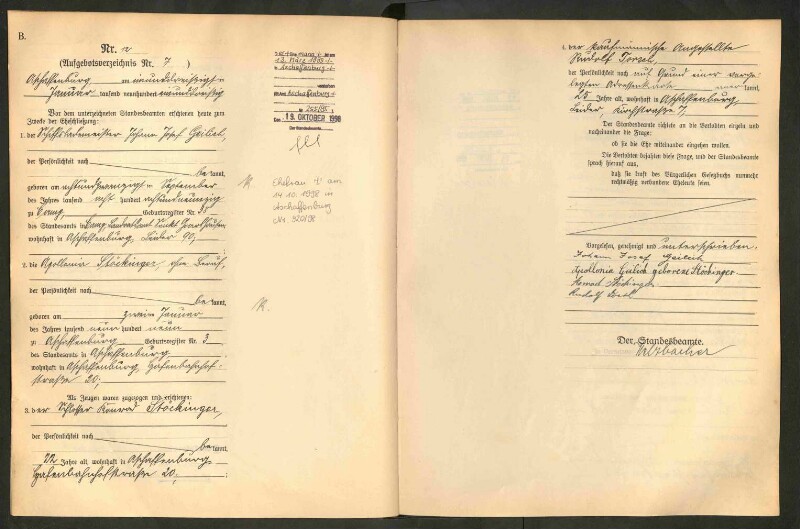 B.
Nr. 2
(Aufgebotsverzeichnis Nr. 7)
Aschaffenburg, am einunddreißigsten
Januar tausend neunhundert einunddreißig
Vor dem unterzeichneten Standesbeamten erschienen heute zum
Zwecke der Eheschließung:
1. der Schiffslademeister Johann Josef Geilich,
der Persönlichkeit nach
be kannt,
geboren am achtundzwanzigsten September
des Jahres tausend acht hundert achtundneunzig
zu Camp, Geburtsregister Nr. 35
des Standesamts in Camp Sankt Goarshausen,
wohnhaft in Aschaffenburg, Leider 90,
2. die Apollonia Stöckinger, ohne Beruf,
der Persönlichkeit nach
be kannt,
geboren am zweiten Januar
des Jahres tausend neun hundert neun
zu Aschaffenburg, Geburtsregister Nr. 3
des Standesamts in Aschaffenburg,
wohnhaft in Aschaffenburg, Hafenbahnhof-
straße 20;
Als Zeugen waren zugezogen und erschienen:
3. der Schlosser Konrad Stöckinger,
der Persönlichkeit nach
be kannt,
22 Jahre alt, wohnhaft in Aschaffenburg,
Hafenbahnhofstraße 20;
Aschaffenburg
Aschaffenburg
Den 19. OKTOBER 1998
Der Standesbeamte
Ehefrau † am
14.10.1998 in
Aschaffenburg
Nr. 920/98
4. der kaufmännische Angestellte
Rudolf
der Persönlichkeit nach auf Grund einer vorge-
legten Adresskarte aner kannt,
25 Jahre alt, wohnhaft in Aschaffenburg,
Leider, Kirchstraße 7,
Der Standesbeamte richtete an die Verlobten einzeln und
nacheinander die Frage:
ob sie die Ehe miteinander eingehen wollen.
Die Verlobten bejahten diese Frage, und der Standesbeamte
sprach hierauf aus,
daß sie kraft des Bürgerlichen Gesetzbuchs nunmehr
rechtmäßig verbundene Eheleute seien.
Vorgelesen, genehmigt und unterschrieben.
Johann Josef Geilich
Apollonia Geilich geborene Stöckinger
Konrad Stöckinger
Rudolf
Der Standesbeamte.